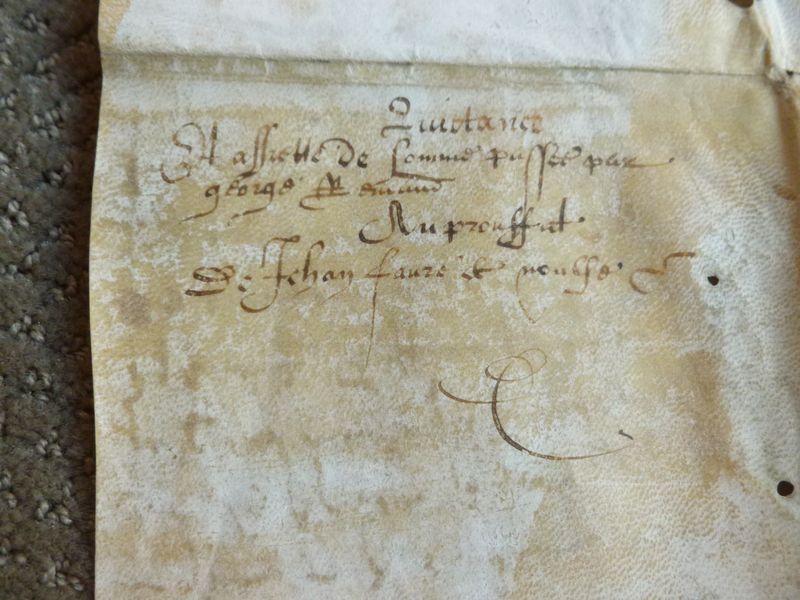 Quictance
Et assiette de somme passee par
george Remaud
Au prouffit
de Jehan faure &